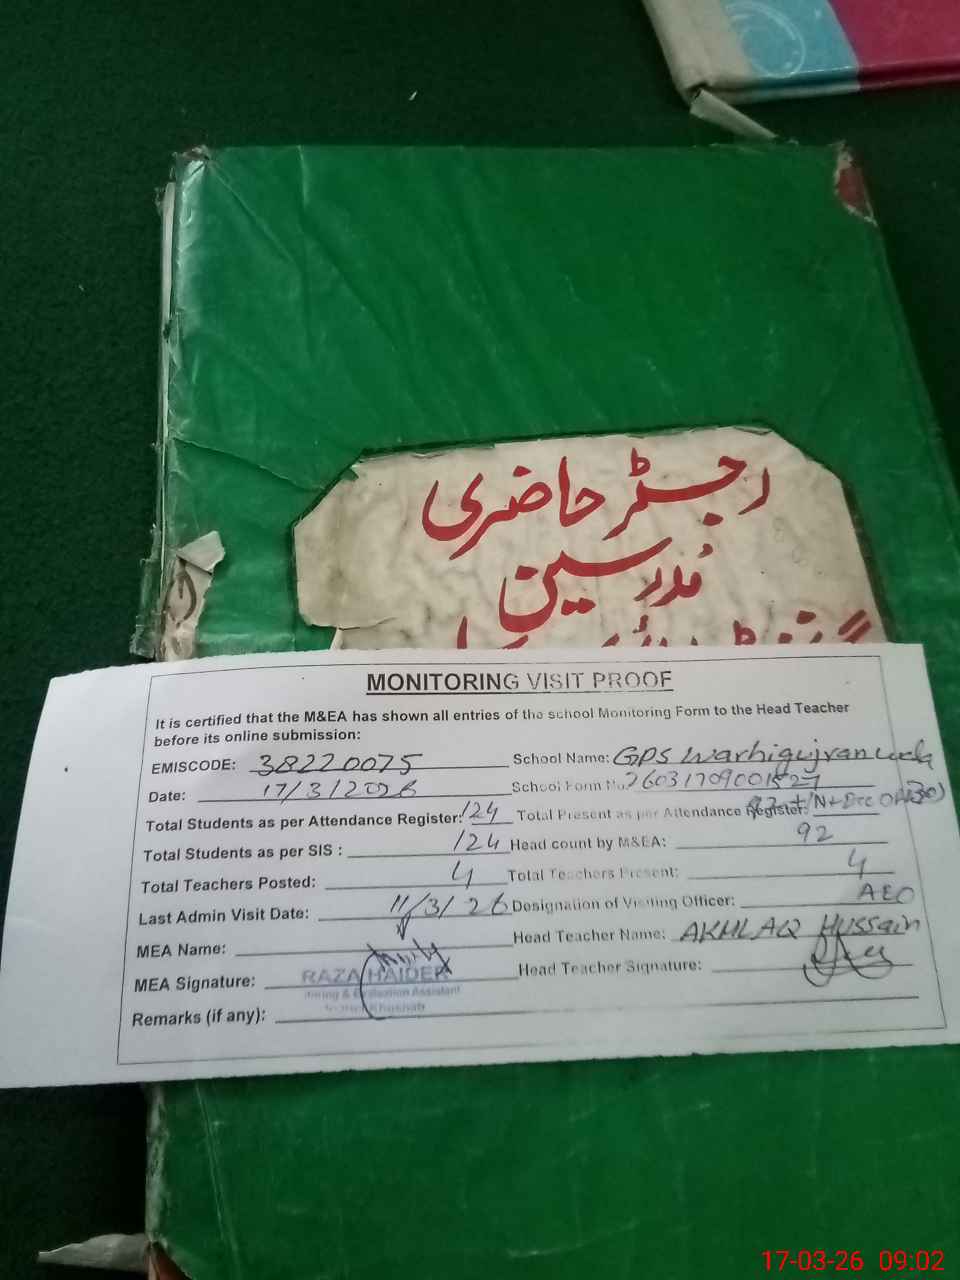 رجسٹر حاضری
مدرسین
MONITORING VISIT PROOF
It is certified that the M&EA has shown all entries of the school Monitoring Form to the Head Teacher
before its online submission:
EMISCODE: 38220075 School Name: GPS Warhigujranwala
Date: 17/3/2026 School Form No.
Total Students as per Attendance Register: 124 Total Present as per Attendance Register:
Total Students as per SIS : 124 Head count by M&EA: 92
Total Teachers Posted: 4 Total Teachers Present: 4
Last Admin Visit Date: 11/3/26 Designation of Visiting Officer: AEO
MEA Name: Head Teacher Name: AKHLAQ Hussain
MEA Signature: RAZA HAIDER Head Teacher Signature:
Evaluation Assistant
Khushab
Remarks (if any):
17-03-26 09:02